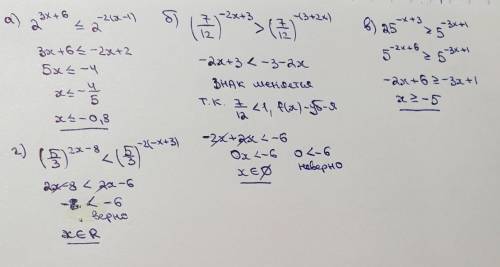 а) 2^(3x+6) ≤ 2^(-2(x-1))
3x+6 ≤ -2x+2
5x ≤ -4
x ≤ -4/5
x ≤ -0,8
б) (7/12)^(-2x+3) > (7/12)^(-(3+2x))
-2x+3 < -3-2x
знак меняется
т.к. 7/12 < 1, f(x) - уб-я
-2x+2x < -6
0x < -6 0 < -6
x ∈ ∅ неверно
в) 25^(-x+3) ≥ 5^(-3x+1)
5^(-2x+6) ≥ 5^(-3x+1)
-2x+6 ≥ -3x+1
x ≥ -5
г) (5/3)^(2x-8) < (5/3)^(-2(-x+3))
2x-8 < 2x-6
-8 < -6
верно
x ∈ R